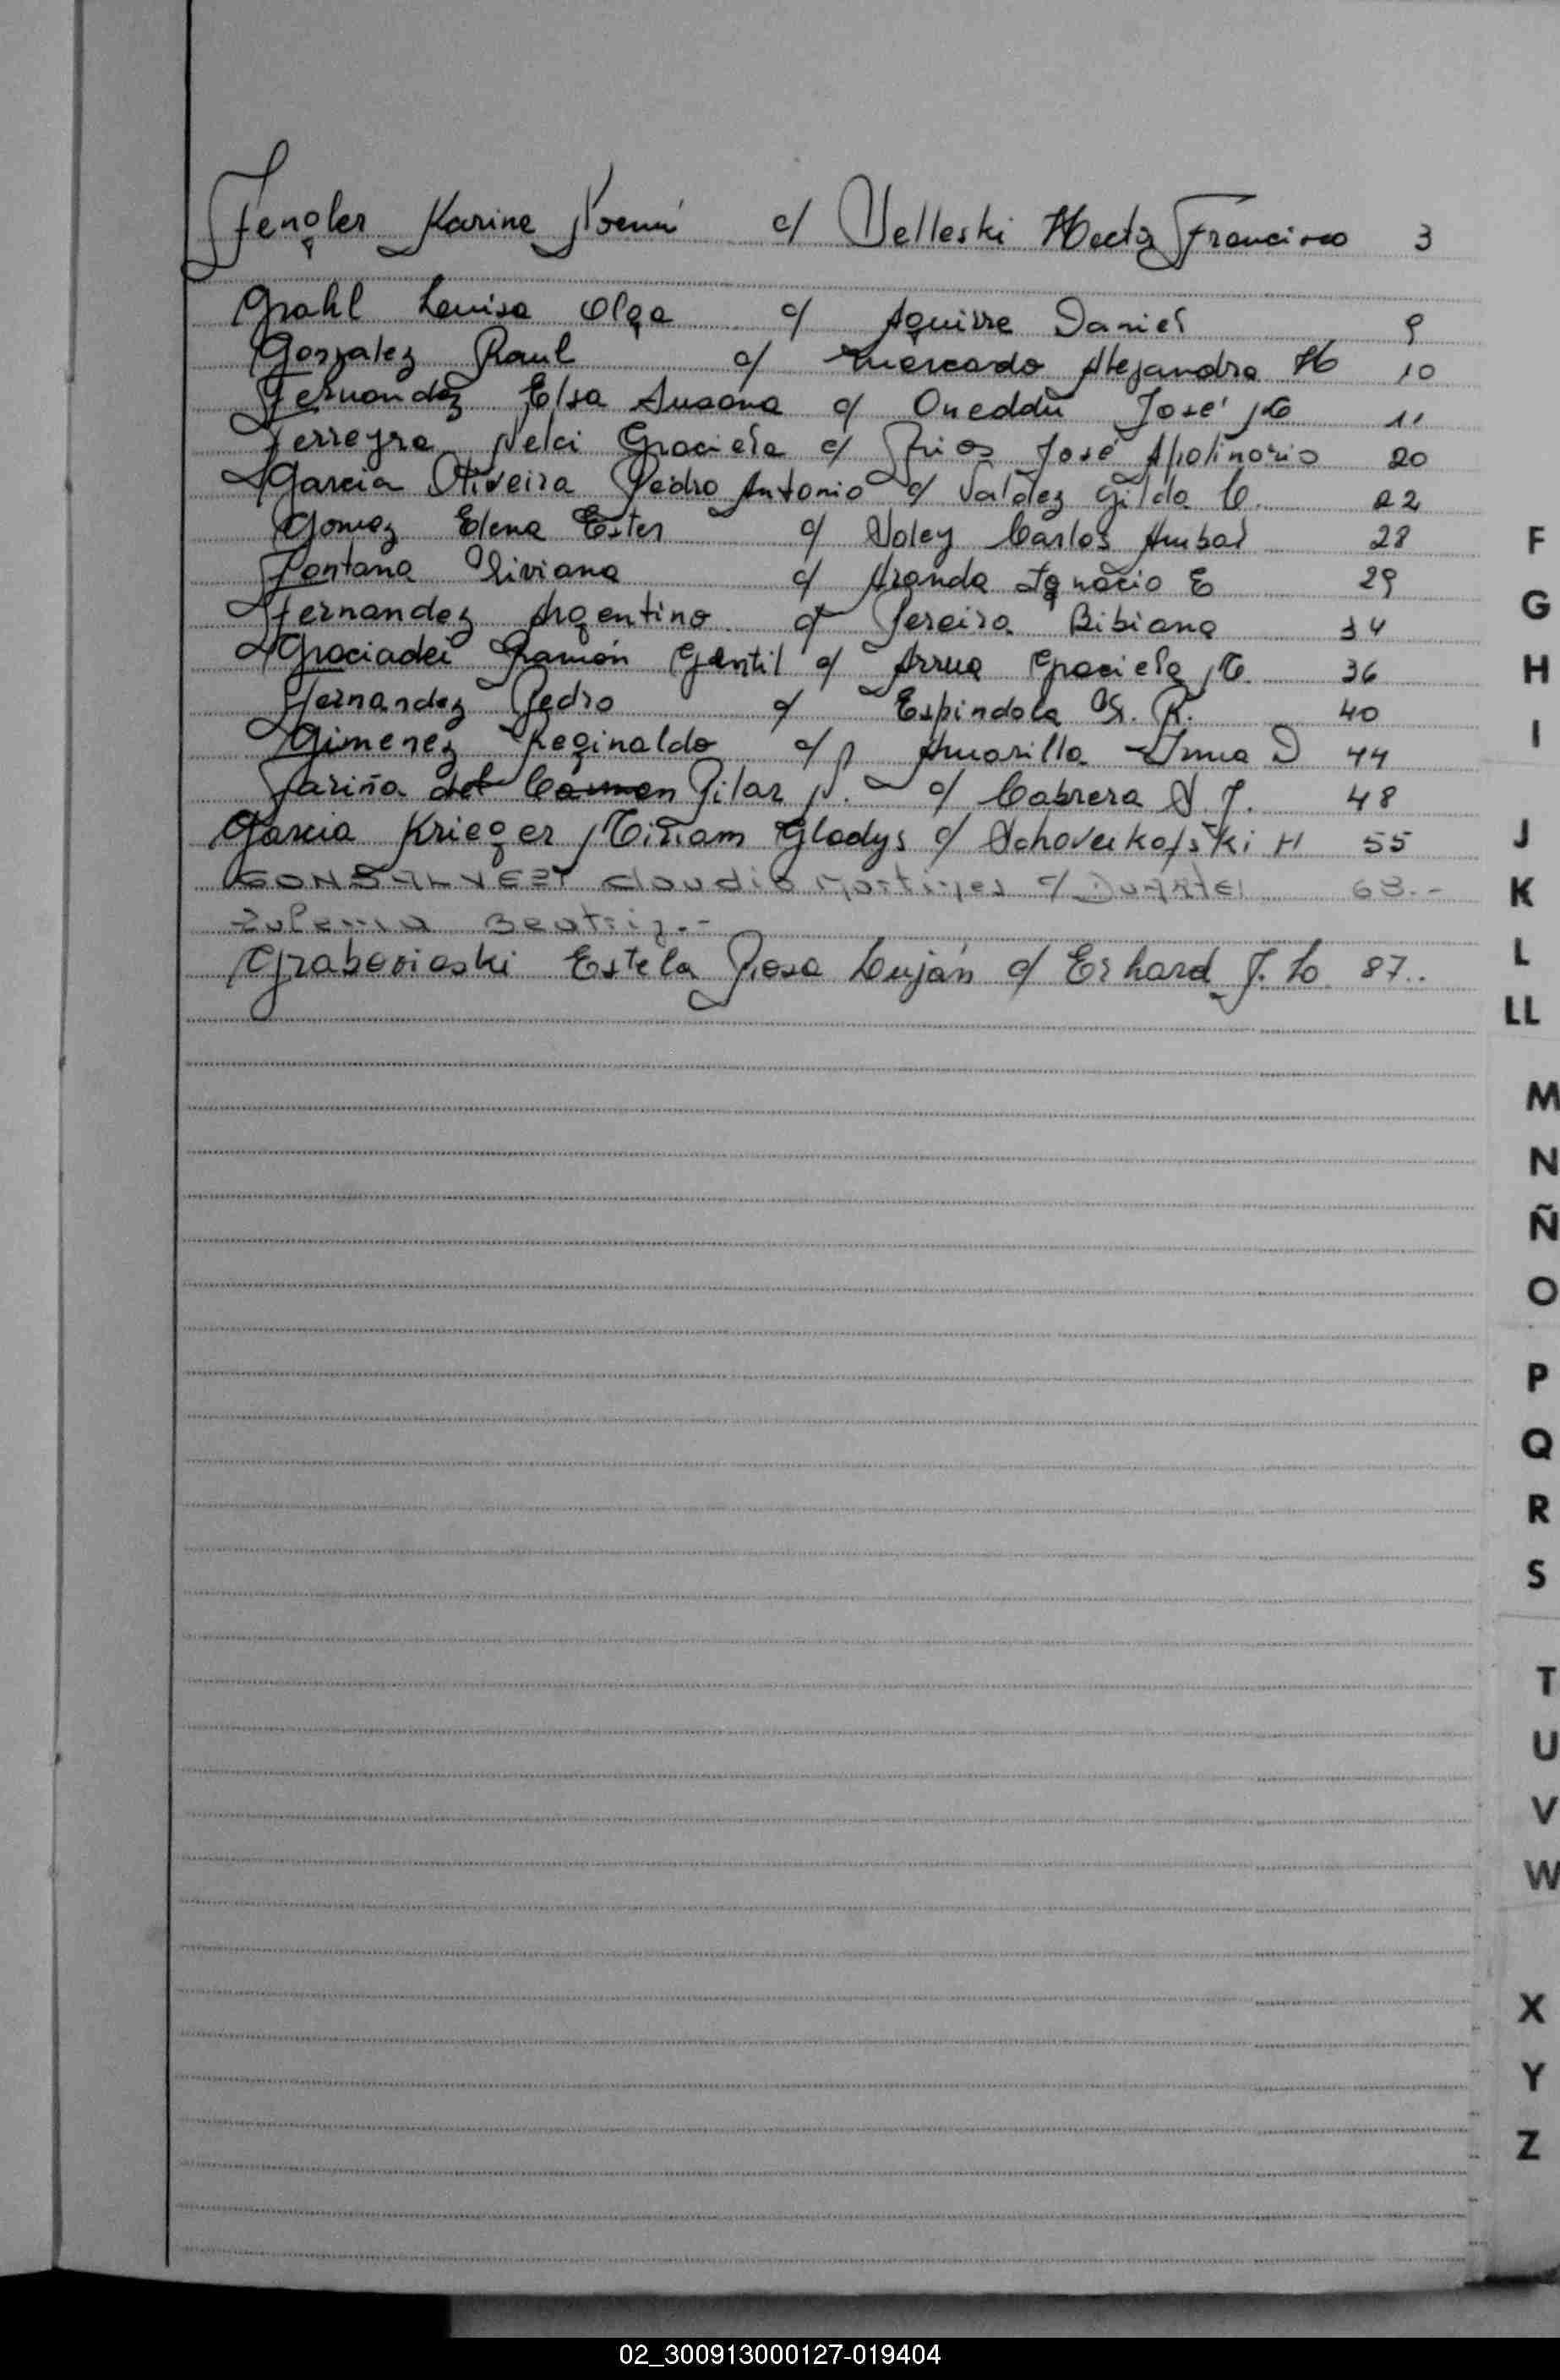 Fengler Karine Noemí c/ Velleski Hector Francisco 3
Grahl Luisa Olga c/ Aguirre Daniel 9
Gonzalez Raul c/ Mercado Alejandra H 10
Fernandez Elsa Susana c/ Oneddu José M 11
Ferreyra Nelci Graciela c/ Rios José Apolinario 20
Garcia Oliveira Pedro Antonio c/ Valdez Gilda C. 22
Gomez Elena Ester c/ Voley Carlos Anibal 28
Fontana Viviana c/ Aranda Ignacio E 29
Fernandez Argentino c/ Pereira Bibiana 34
Graciadei Ramón Gentil c/ Arrua Graciela M. 36
Fernandez Pedro c/ Espindola R. 40
Gimenez Reginaldo c/ Amarilla Irma D 44
Fariña del Carmen Pilar N. c/ Cabrera J. 48
Garcia Krieger Miriam Gladys c/ H 55
Claudio c/ Duarte 63.-
Zulema Beatriz.-
Grabovieski Estela Rosa Luján c/ Erhard J. L. 87..
F
G
H
I
J
K
L
LL
M
N
Ñ
O
P
Q
R
S
T
U
V
W
X
Y
Z
02_300913000127-019404